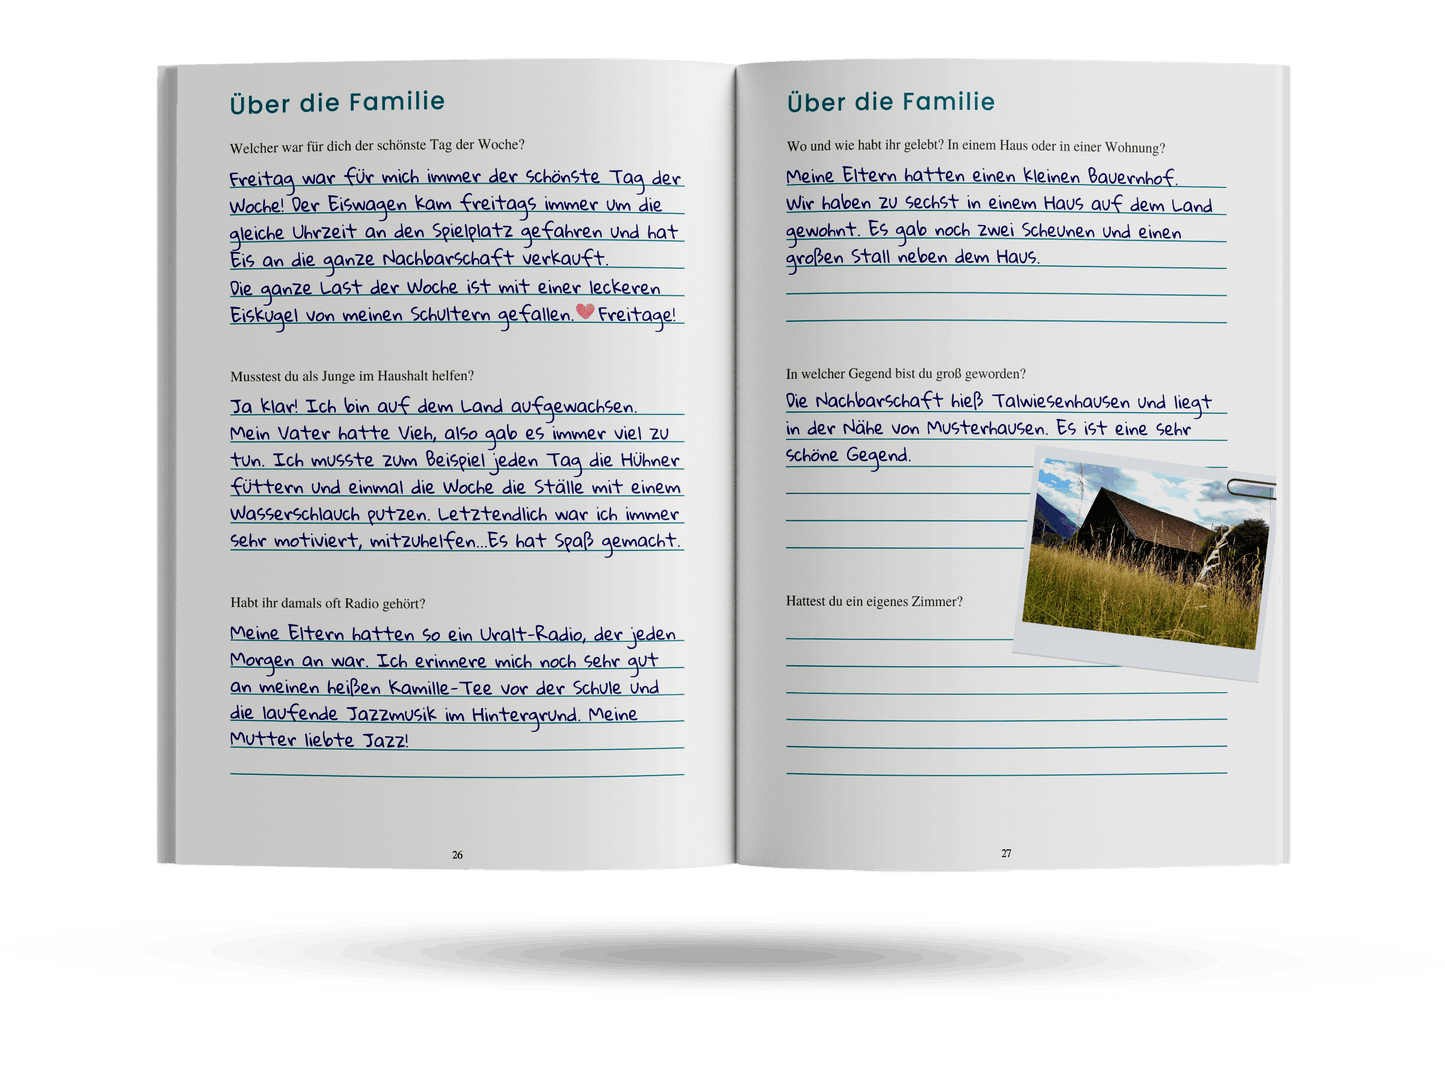 Über die Familie
Welcher war für dich der schönste Tag der Woche?
Freitag war für mich immer der schönste Tag der
Woche! Der Eiswagen kam freitags immer um die
gleiche Uhrzeit an den Spielplatz gefahren und hat
Eis an die ganze Nachbarschaft verkauft.
Die ganze Last der Woche ist mit einer leckeren
Eiskugel von meinen Schultern gefallen. ❤ Freitage!
Musstest du als Junge im Haushalt helfen?
Ja klar! Ich bin auf dem Land aufgewachsen.
Mein Vater hatte Vieh, also gab es immer viel zu
tun. Ich musste zum Beispiel jeden Tag die Hühner
füttern und einmal die Woche die Ställe mit einem
Wasserschlauch putzen. Letztendlich war ich immer
sehr motiviert, mitzuhelfen...Es hat Spaß gemacht.
Habt ihr damals oft Radio gehört?
Meine Eltern hatten so ein Uralt-Radio, der jeden
Morgen an war. Ich erinnere mich noch sehr gut
an meinen heißen Kamille-Tee vor der Schule und
die laufende Jazzmusik im Hintergrund. Meine
Mutter liebte Jazz!
26
Über die Familie
Wo und wie habt ihr gelebt? In einem Haus oder in einer Wohnung?
Meine Eltern hatten einen kleinen Bauernhof.
Wir haben zu sechst in einem Haus auf dem Land
gewohnt. Es gab noch zwei Scheunen und einen
großen Stall neben dem Haus.
In welcher Gegend bist du groß geworden?
Die Nachbarschaft hieß Talwiesenhausen und liegt
in der Nähe von Musterhausen. Es ist eine sehr
schöne Gegend.
Hattest du ein eigenes Zimmer?
27